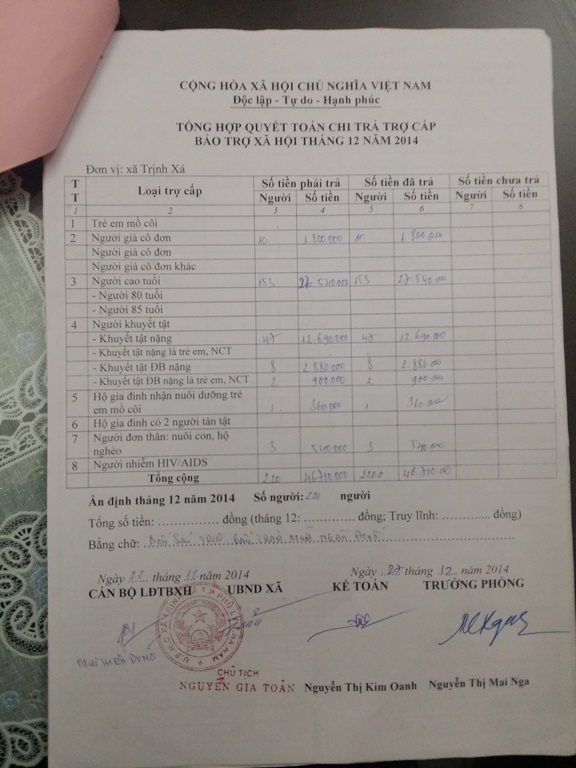 CỘNG HÒA XÃ HỘI CHỦ NGHĨA VIỆT NAM
Độc lập - Tự do - Hạnh phúc
TỔNG HỢP QUYẾT TOÁN CHI TRẢ TRỢ CẤP
BẢO TRỢ XÃ HỘI THÁNG 12 NĂM 2014
Đơn vị: xã Trịnh Xá
TT Loại trợ cấp Số tiền phải trả Số tiền đã trả Số tiền chưa trả
Người Số tiền Người Số tiền Người Số tiền
1 2 3 4 5 6 7 8
1 Trẻ em mồ côi
2 Người già cô đơn 10 1.800.000 10 1.800.000
Người già cô đơn
Người già cô đơn khác
3 Người cao tuổi 153 27.540.000 153 27.540.000
- Người 80 tuổi
- Người 85 tuổi
4 Người khuyết tật
- Khuyết tật nặng 47 12.690.000 47 12.690.000
- Khuyết tật nặng là trẻ em, NCT
- Khuyết tật ĐB nặng 8 2.880.000 8 2.880.000
- Khuyết tật ĐB nặng là trẻ em, NCT 2 900.000 2 900.000
5 Hộ gia đình nhận nuôi dưỡng trẻ
em mồ côi 1 360.000 1 360.000
6 Hộ gia đình có 2 người tàn tật
7 Người đơn thân: nuôi con, hộ
nghèo 3 540.000 3 540.000
8 Người nhiễm HIV/AIDS
Tổng cộng 220 46.710.000 220 46.710.000
Ấn định tháng 12 năm 2014 Số người: 220 người
Tổng số tiền: ................ đồng (tháng 12: ............ đồng; Truy lĩnh: ............ đồng)
Bằng chữ:
Ngày tháng năm 2014 Ngày 27 tháng 12 năm 2014
CÁN BỘ LĐTBXH UBND XÃ KẾ TOÁN TRƯỞNG PHÒNG
CHỦ TỊCH
NGUYỄN GIA TOẢN Nguyễn Thị Kim Oanh Nguyễn Thị Mai Nga